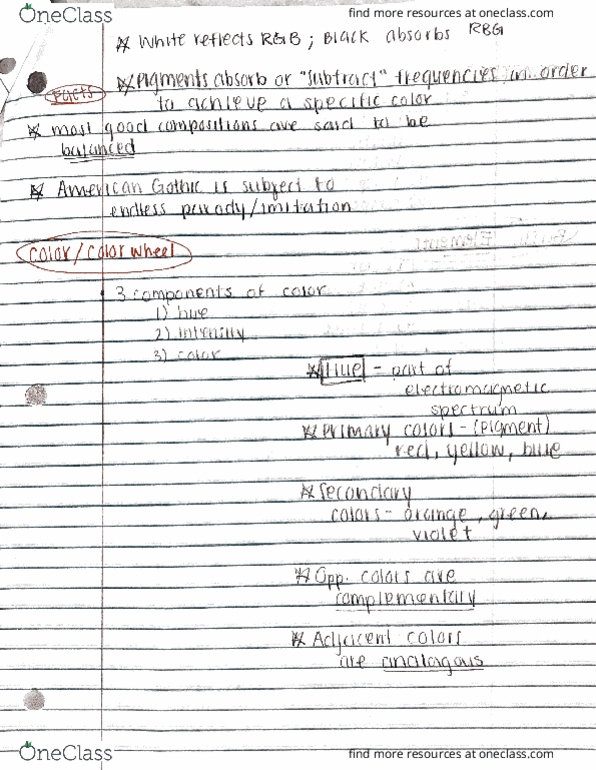 OneClass
find more resources at oneclass.com
White reflects RGB ; Black absorbs RBG
Facts
Pigments absorb or "subtract" frequencies in order
to achieve a specific color
most good compositions are said to be
balanced
American Gothic is subject to
endless parody/imitation
color/color wheel
3 components of color
1) hue
2) intensity
3) color
Hue - part of
electromagnetic
spectrum
Primary colors - (pigment)
red, yellow, blue
Secondary
colors - orange, green,
violet
Opp. colors are
complementary
Adjacent colors
are analagous
OneClass
find more resources at oneclass.com